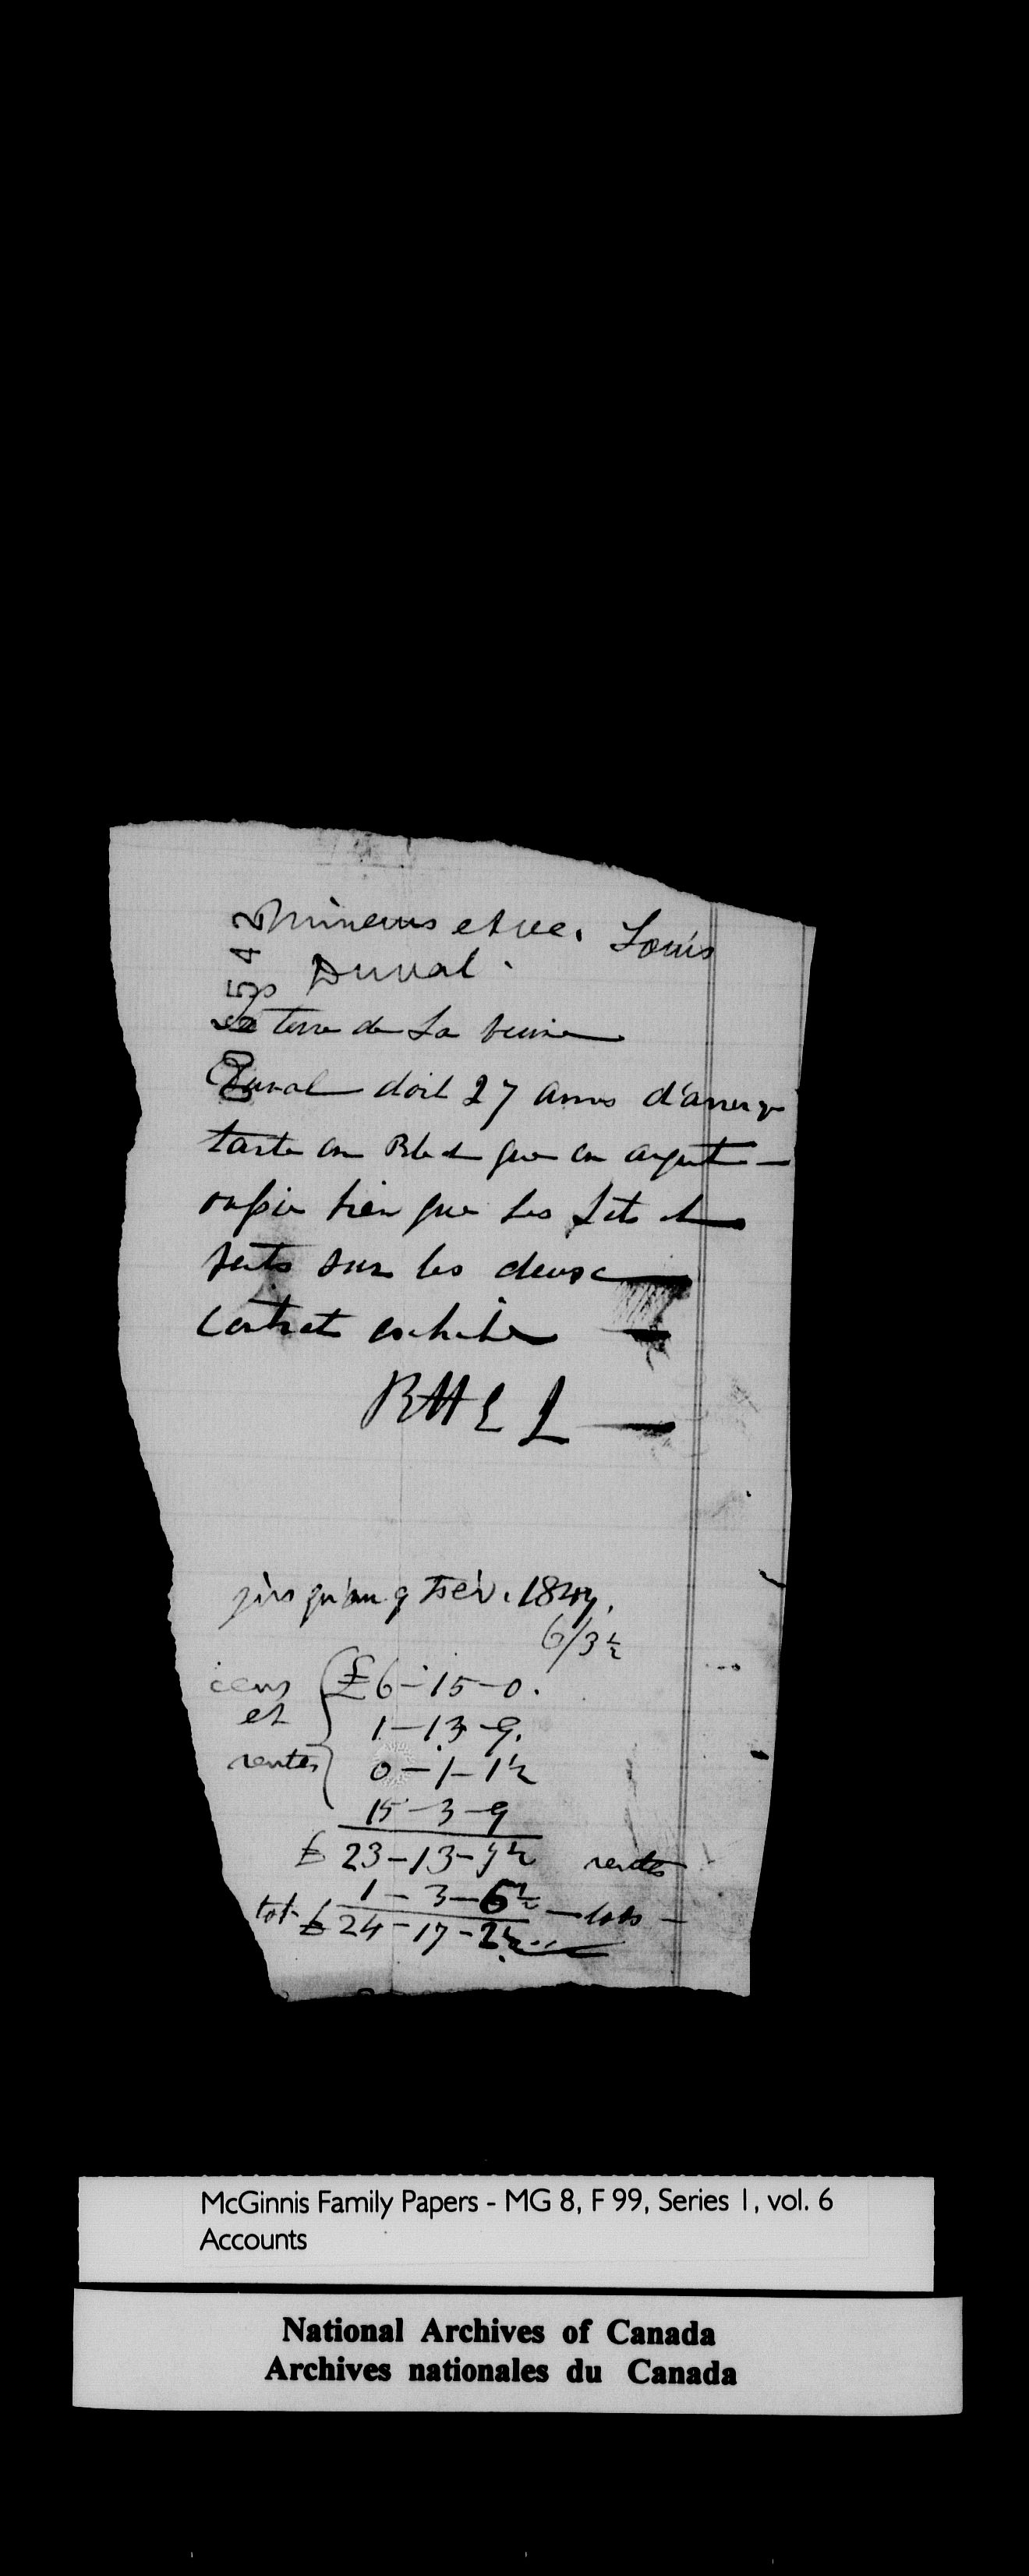 Mineurs et ve. Louis
Duval.
La terre de La veuve
Duval doit 27 anns d'arrerg
tarte en Bled que en argent —
aussie bien que les Lots et
vents sur les deuse
Contrat exhibe —
RMcG
jusqu'au 9 Fév. 1847.
6/3½
cens £6-15-0.
et 1-13-9.
rentes 0-1-1½
15-3-9
£ 23-13-7½ rentes
1-3-6½ — lots —
tot. £ 24-17-2½
McGinnis Family Papers - MG 8, F 99, Series 1, vol. 6
Accounts
National Archives of Canada
Archives nationales du Canada